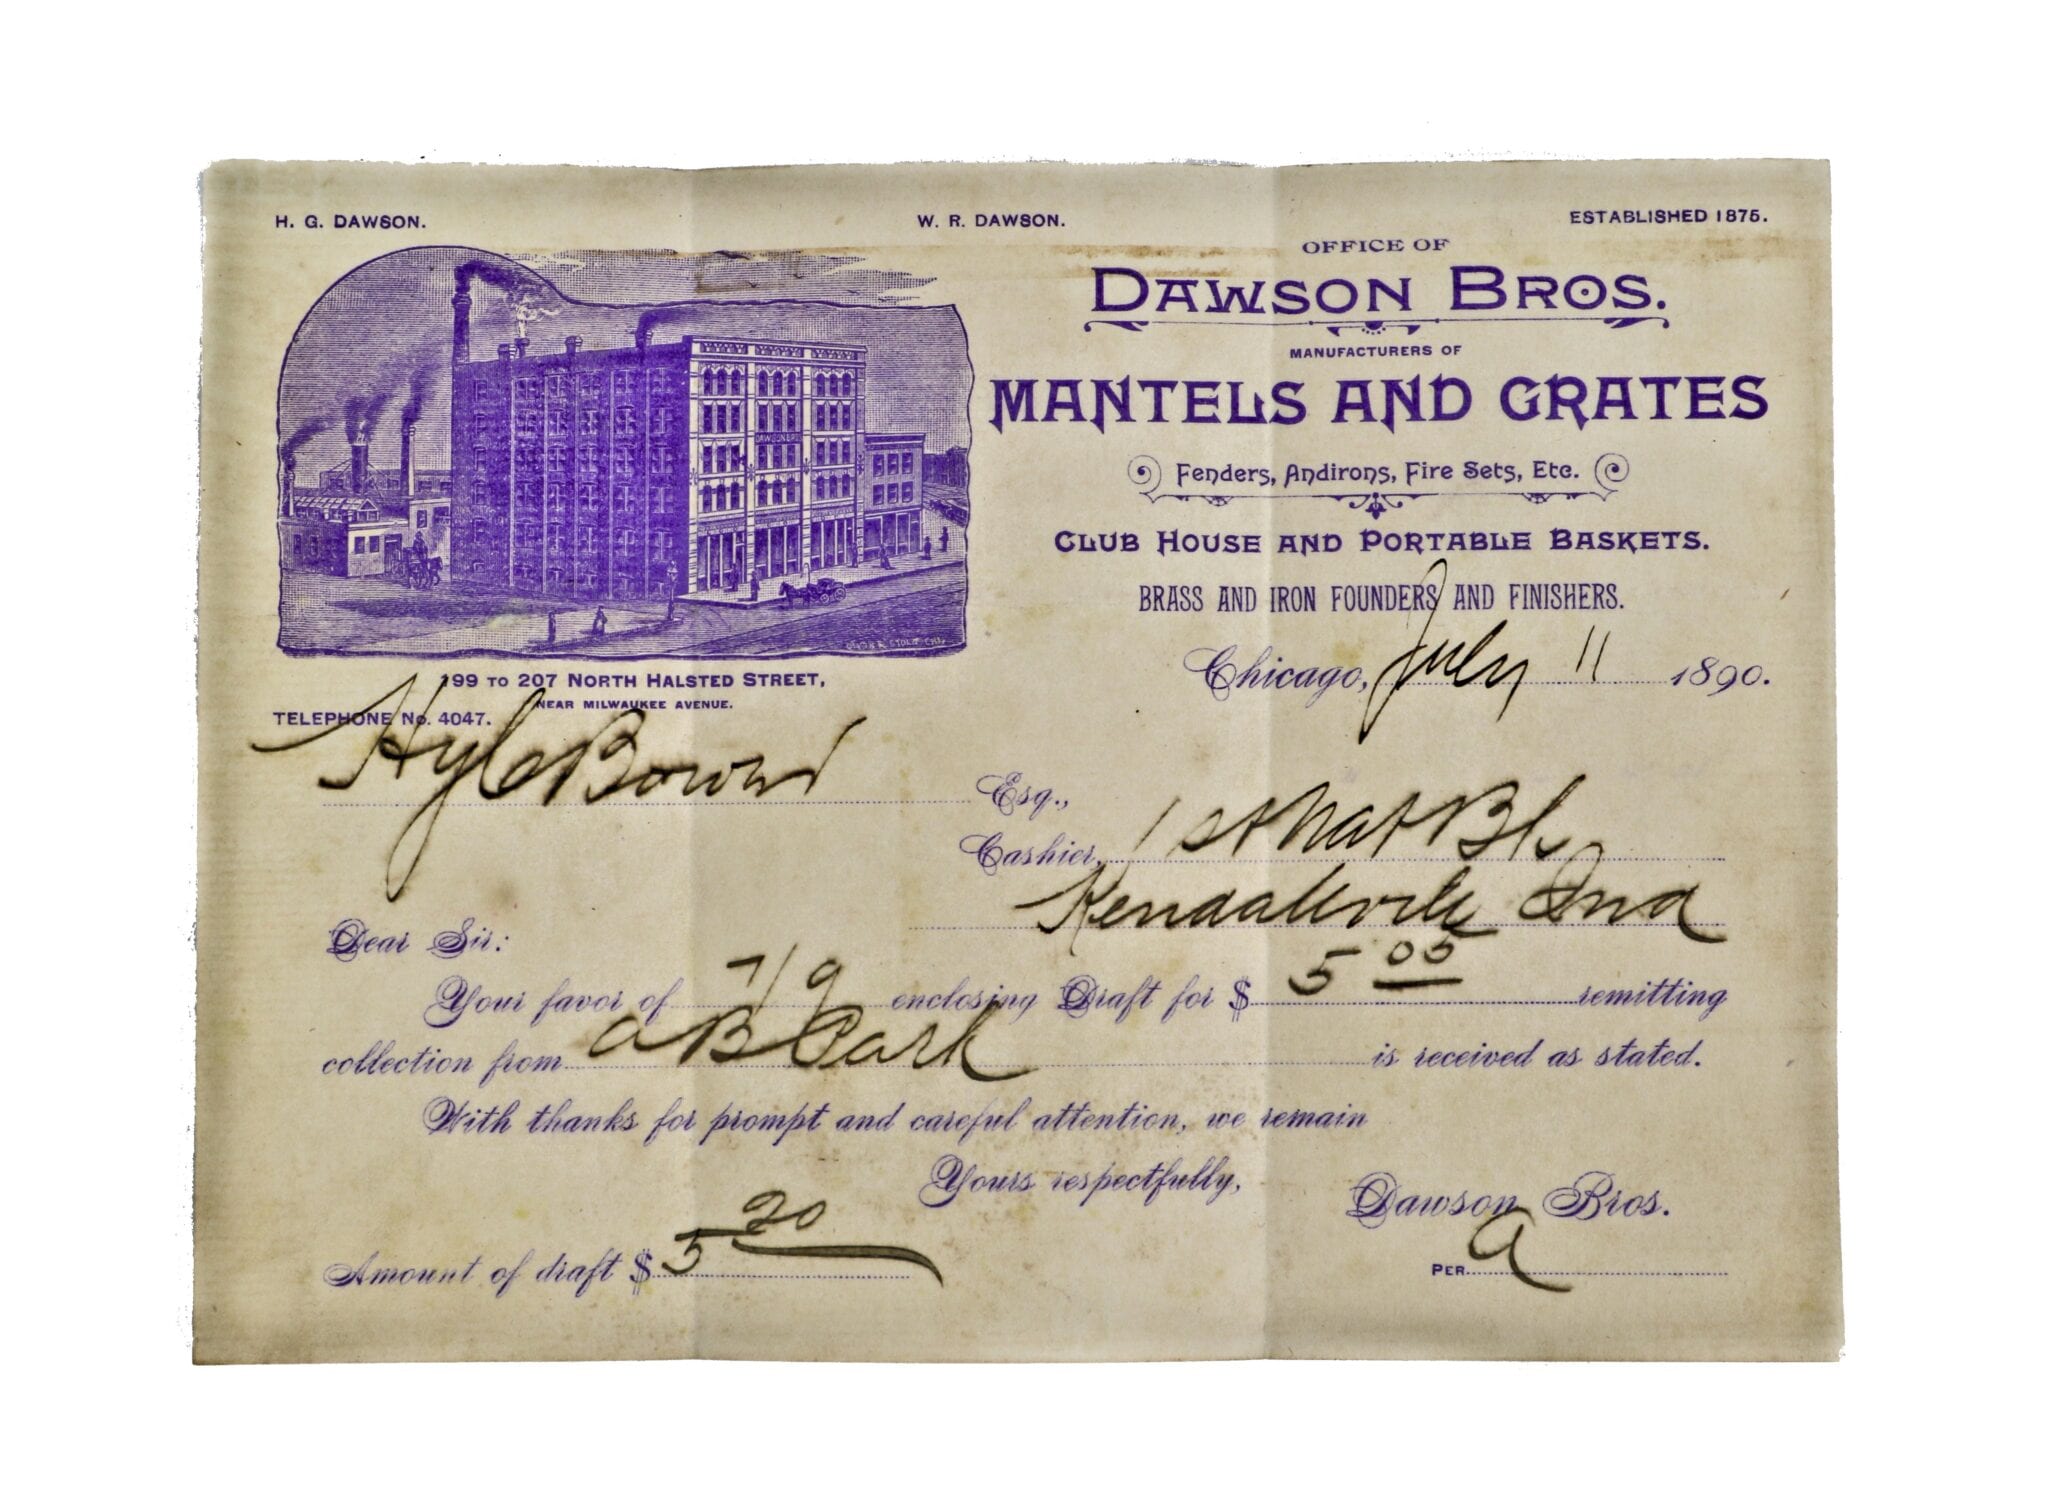 H. G. DAWSON.
W. R. DAWSON.
ESTABLISHED 1875.
OFFICE OF
DAWSON BROS.
MANUFACTURERS OF
MANTELS AND GRATES
Fenders, Andirons, Fire Sets, Etc.
CLUB HOUSE AND PORTABLE BASKETS.
BRASS AND IRON FOUNDERS AND FINISHERS.
DAWSON BROS
199 TO 207 NORTH HALSTED STREET,
NEAR MILWAUKEE AVENUE.
TELEPHONE No. 4047.
Chicago, July 11 1890.
Esq.,
Cashier, 1st Nat Bk
Kendallville Ind
Dear Sir:
Your favor of 7/9 enclosing Draft for $ 5 05 remitting
collection from a B Park is received as stated.
With thanks for prompt and careful attention, we remain
Yours respectfully,
Dawson Bros.
Amount of draft $ 5 20
PER a